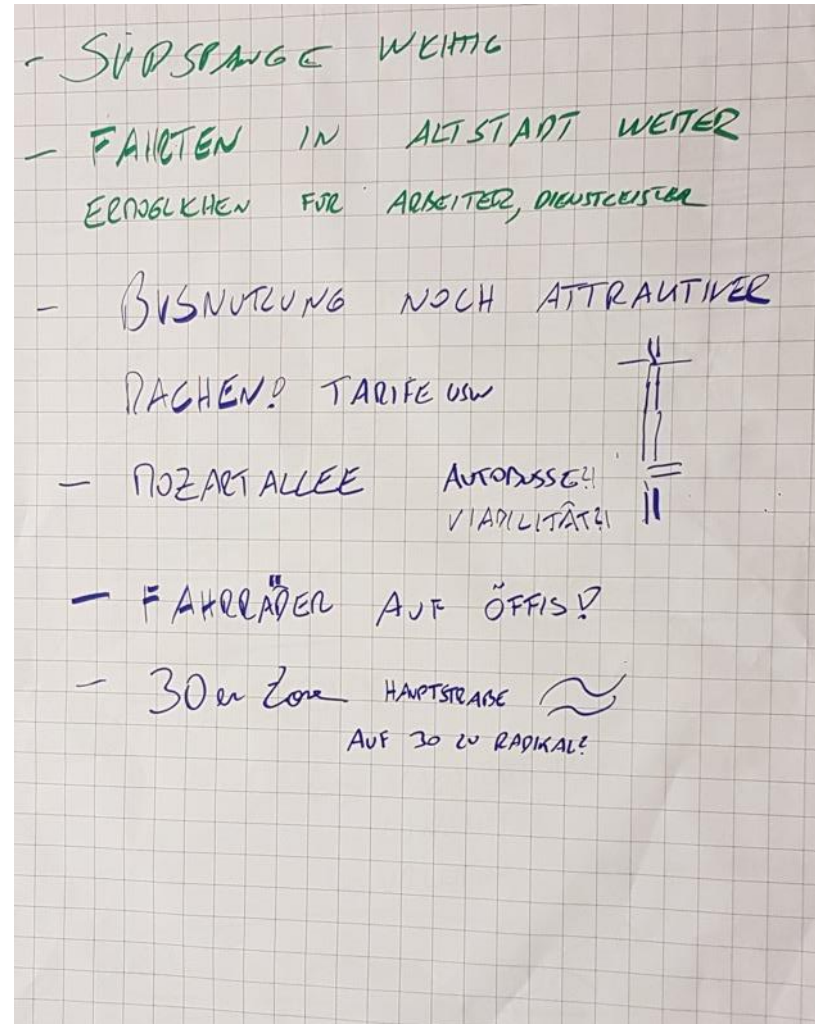 - SÜDSPANGE WICHTIG
- FAHRTEN IN ALTSTADT WEITER
ERMÖGLICHEN FÜR ARBEITER, DIENSTLEISTER
- BUSNUTZUNG NOCH ATTRAKTIVER
MACHEN! TARIFE USW
- MOZARTALLEE AUTOBUSSE?!
VIABILITÄT?!
- FAHRRÄDER AUF ÖFFIS!
- 30er Zone HAUPTSTRAßE
AUF 30 ZU RADIKAL?